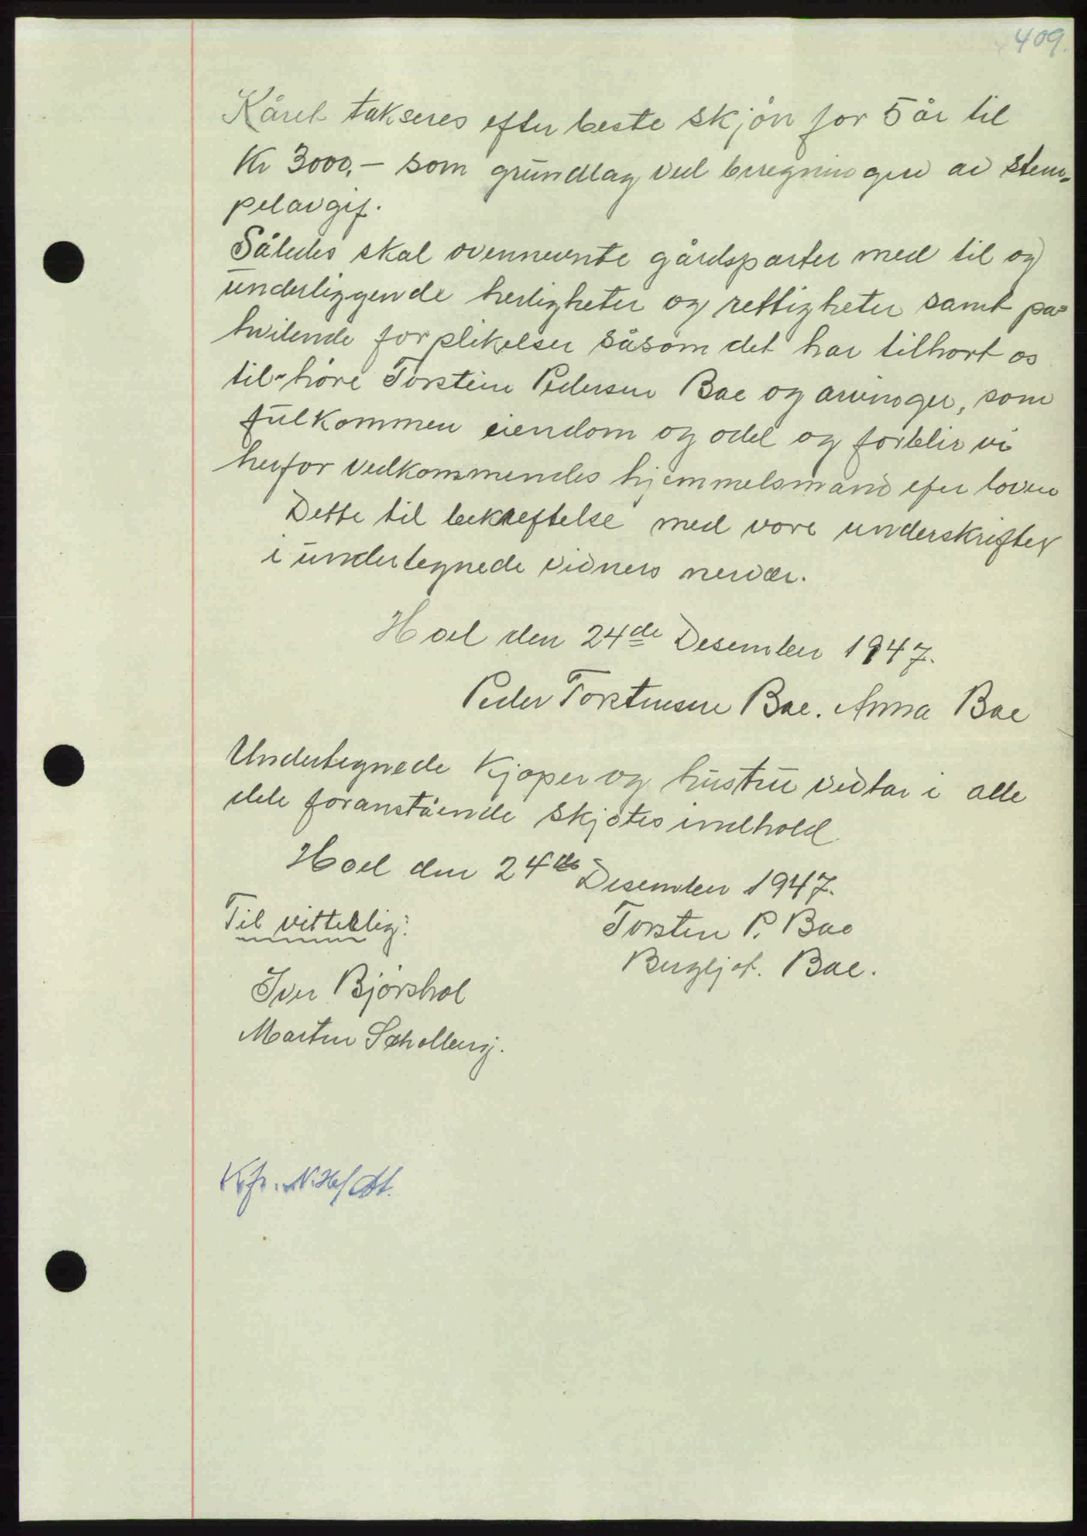 409.
Kåret takseres efter beste skjön for 5 år til
Kr 3000,- som grundlag ved beregningen av stem-
pelavgif.
Således skal ovennevnte gårdsparter med til og
underliggende herligheter og rettigheter samt på-
hvilende forplikelser såsom det har tilhort os
til-höre Torstein Pedersen Bae og arvinger, som
fulkommen eiendom og odel og forblir vi
herfor vedkommendes hjemmelsmand efer loven
Dette til bekreftelse med vore underskrifter
i undertegnede vidners nervær.
Hoel den 24de Desember 1947.
Peder Torstensen Bae. Anna Bae
Undertegnede Kjøper og hustru vedtar i alle
dele foranstående skjötes indhold
Hoel den 24de Desember 1947.
Til vitterlig:
Torsten P. Bae
Bergljot. Bae.
Iver Bjørshol
Martin Scholberg.
Kfr.